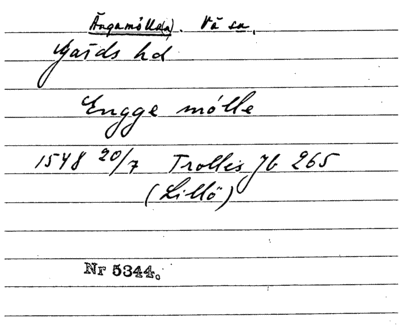 Ängamölla(n). Vä sn.
Gärds hd
Engge mölle
1548 20/7 Trolles Jb 265
(Lillö)
Nr 5344.